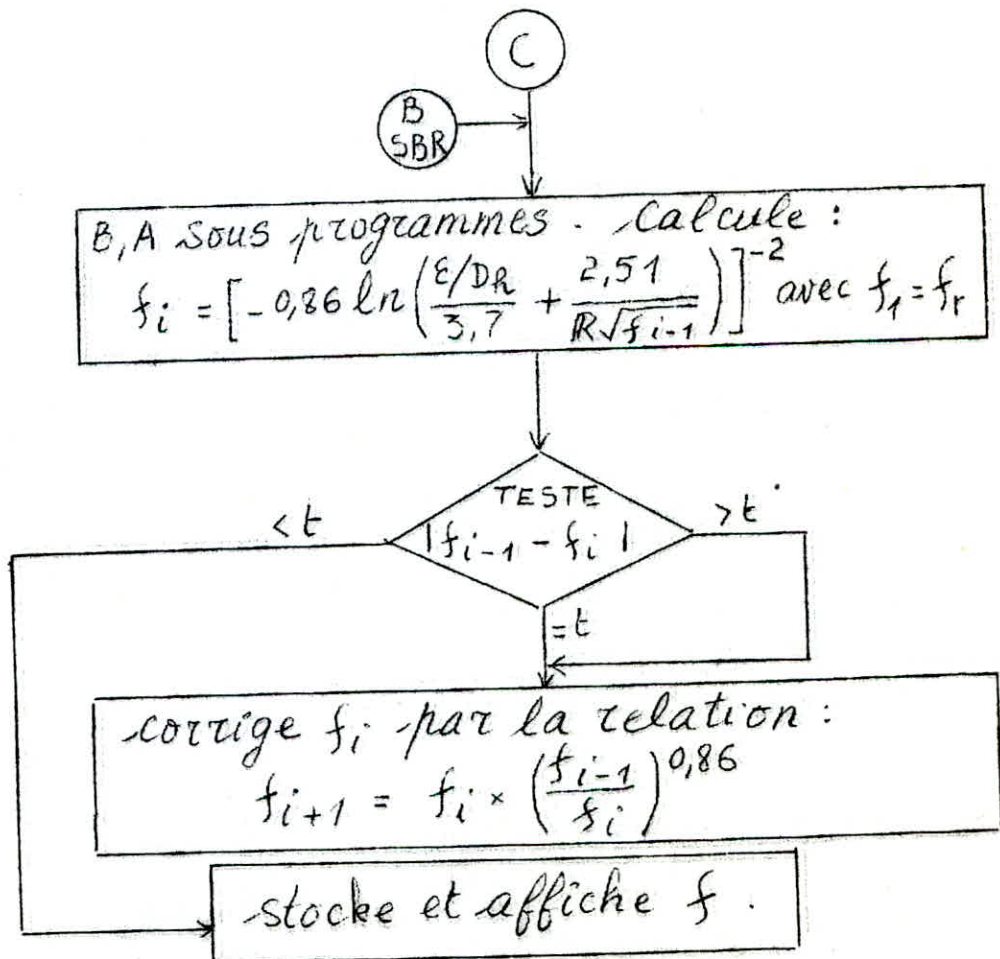 C
B
SBR
B, A sous programmes. Calcule :
f_i = [-0,86 ln( (ε/Dh)/3,7 + 2,51/(R√f_{i-1}) )]^{-2} avec f_1 = f_r
TESTE
|f_{i-1} - f_i|
< t
> t
= t
corrige f_i par la relation :
f_{i+1} = f_i × (f_{i-1}/f_i)^{0,86}
stocke et affiche f.